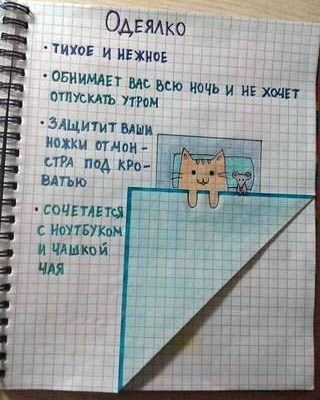 Одеялко
• тихое и нежное
• обнимает вас всю ночь и не хочет
отпускать утром
• защитит ваши
ножки от мон-
стра под кро-
ватью
• сочетается
с ноутбуком
и чашкой
чая